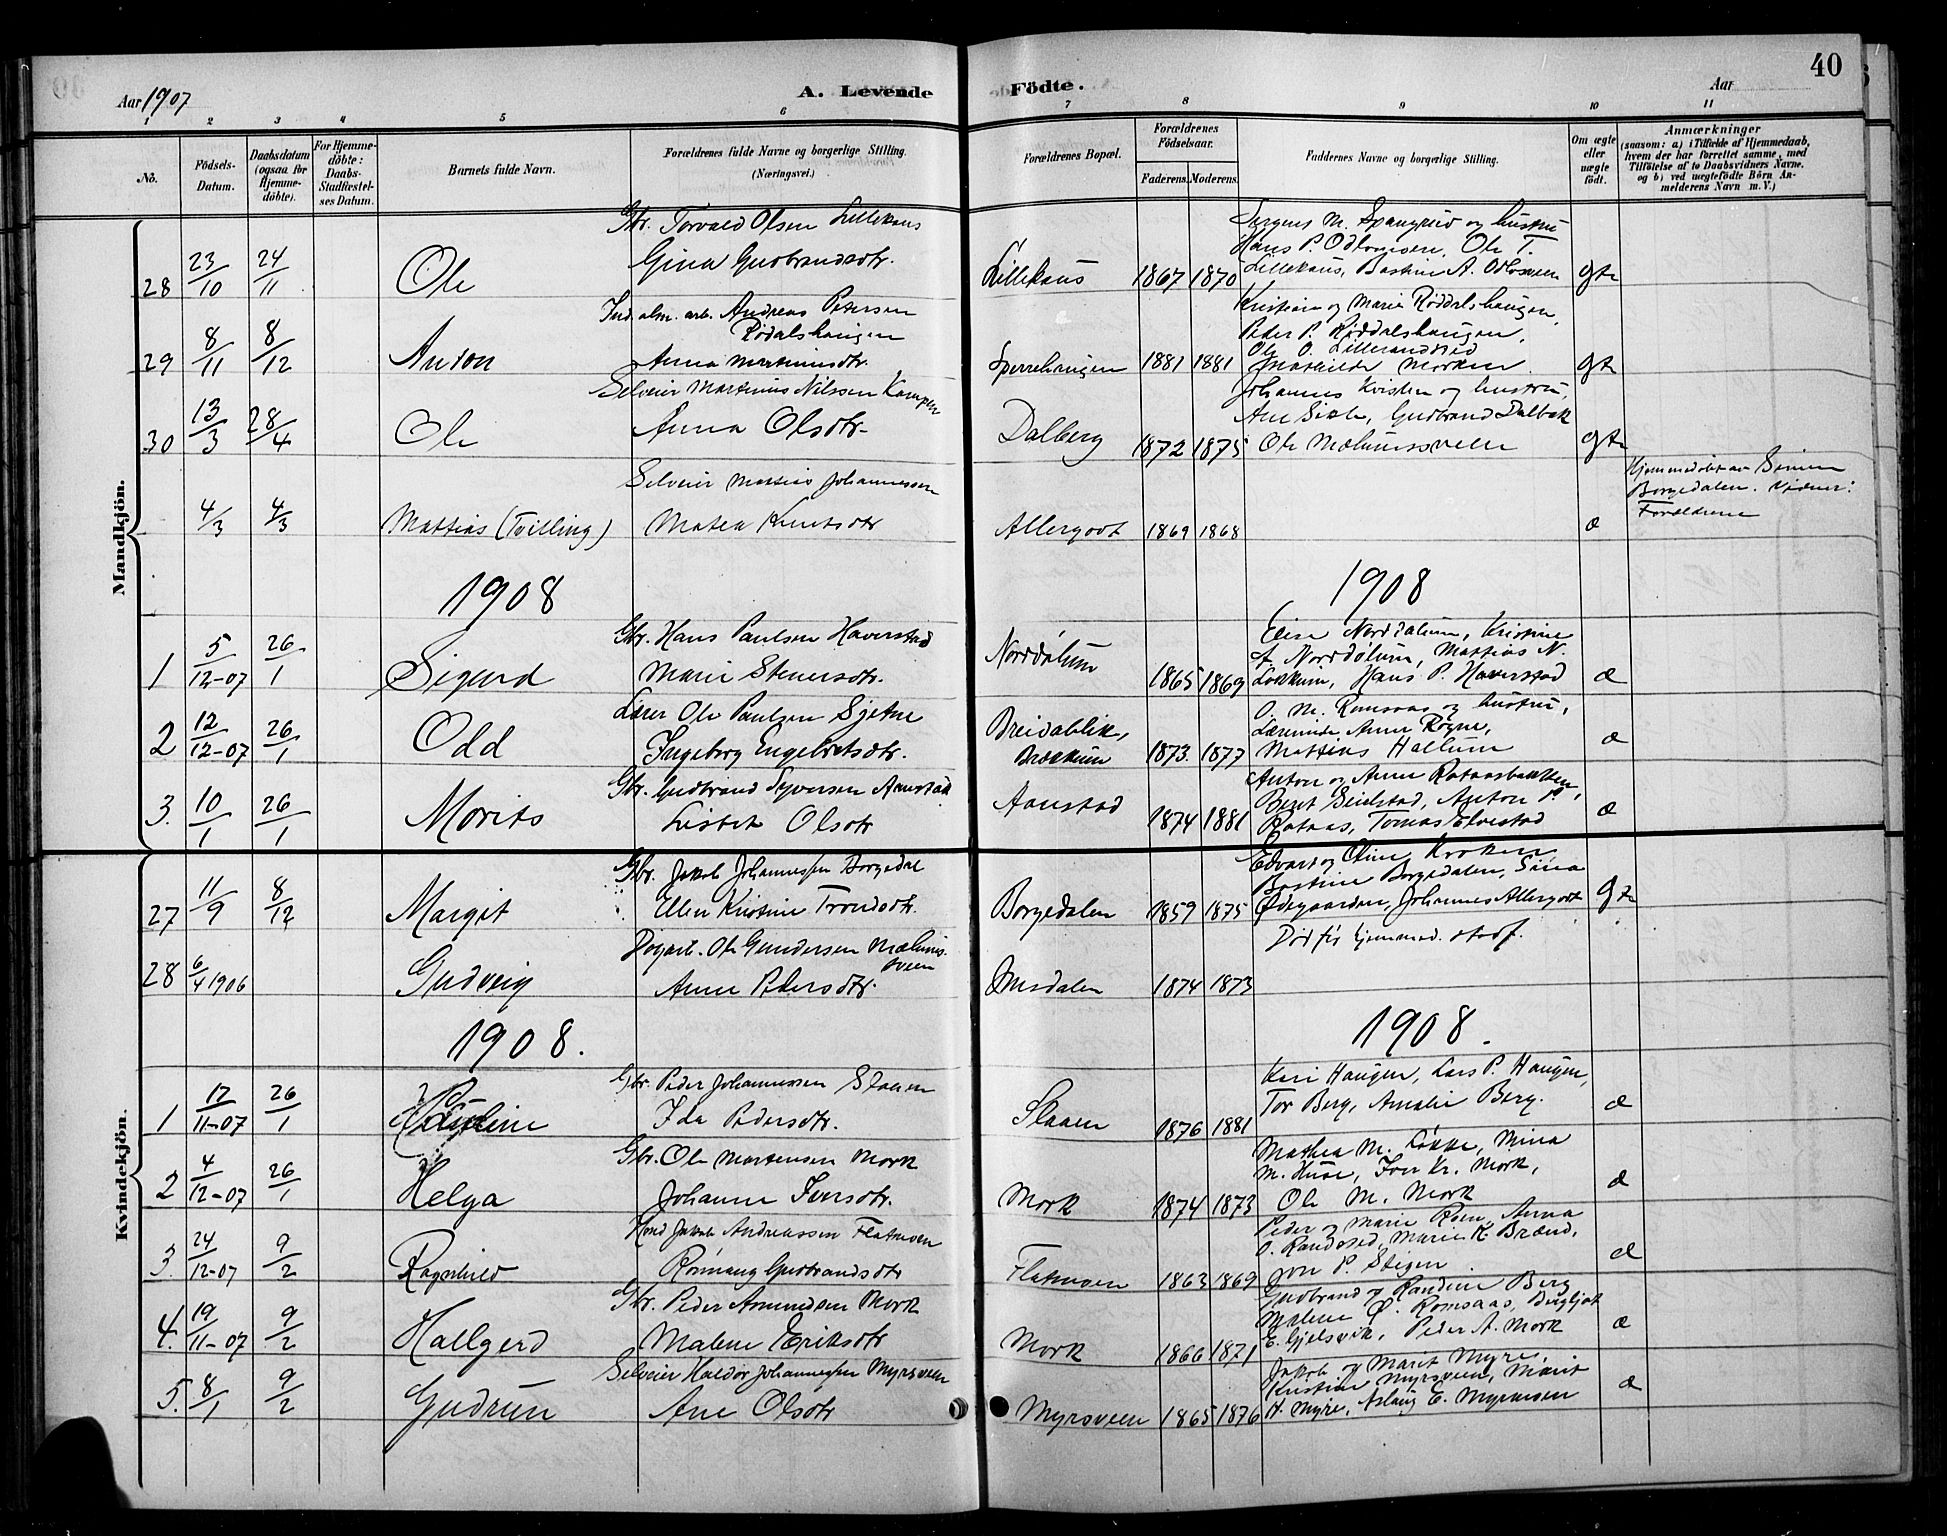 40
Aar 1907
A. Levende
Födte.
Aar
1 2 3 4 5 6 7 8 9 10 11
No.
Födsels-
Datum.
Daabsdatum
(ogsaa for
Hjemme-
döbte).
For Hjemme-
döbte:
Daabs-
Stadfæstel-
ses Datum.
Barnets fulde Navn.
Forældrenes fulde Navne og borgerlige Stilling.
(Næringsvei.)
Forældrenes Bopæl.
Forældrenes
Födselsaar.
Faderens. Moderens.
Faddernes Navne og borgerlige Stilling.
Om ægte
eller
uægte
født.
Anmærkninger
(saasom: a) i Tilfælde af Hjemmedaab,
hvem der har forrettet samme, med
Tilföielse af to Daabsvidners Navne.
og b) ved uægtefödte Börn An-
melderens Navn m. V.)
Mandkjön.
28 23/10 24/11 Ole
Gbr. Torvald Olsen Lillekaus
Gina Gudbrandsdtr.
Lillekaus 1867 1870
Hans P. Ole T.
Lillekaus, Bastine A.
gte
29 8/11 8/12 Anton
Ind. alm. arb. Andreas Petersen
Rødalshaugen
Anna Martinusdtr.
1881 1881
Kristian og Marie Røddalshaugen,
Peder P. Røddalshaugen,
Ole O.
Mathilde Morken
gte
30 13/3 28/4 Ole
Selveier Martinus Nilssen Kampen
Anna Olsdtr.
Dalberg 1872 1875
Johannes Kvislen og hustru,
Ane Gudbrand Dalbak
Ole Mælumssveen
gte
4/3 4/3 Mattias (Tvilling)
Selveier Mattias Johannessen
Matea Knutsdtr
Allergodt 1869 1868
æ
Hjemmedøbt av Simen
Borgedalen. Vidner:
Forældrene
1908
1908
1 5/12-07 26/1 Sigurd
Gbr. Hans Paulsen Haverstad
Marie Stenersdtr.
Norddølum 1865 1869
Norddølum, Kristine
A. Norddølum, Mattias N.
Løkkum, Hans P. Haverstad
æ
2 12/12-07 26/1 Odd
Lærer Ole Paulsen Sjetne
Ingeborg Engebretsdtr.
Breidablik,
Brækkum 1873. 1877
O. M. Romsaas og hustru,
Lærerinde Anne Rogne,
Mattias Hallum
æ
3. 10/1 26/1 Morits
Gbr. Gudbrand Syversen Aanstad
Lisbet Olsdtr
Aanstad 1874 1881
Anton og Anne Rataasbakken,
Beret Seielstad, Anton P.
Rataas, Tomas Elvestad
æ
Kvindekjön.
27 11/9 8/12 Margit
Gbr. Jakob Johannessen Borgedal
Ellen Kristine Trondsdtr.
Borgedalen 1859 1875
Edvart og Oline Kroken
Bastine Borgedalen, Sina
Ødegaarden, Johannes Allergodt
gte
28 6/4 1906 Gudveig
Dagarb. Ole Gundersen Mælums-
sveen
Anne Pedersdtr.
1874 1873
Død før hjemmed. stadf.
1908.
1908.
1 17/11-07 26/1
Gbr. Peder Johannessen Slaaen
Ida Pedersdtr.
Slaaen 1876 1881
Kari Haugen, Lars P. Haugen,
Tor Berg, Amalie Berg.
æ
2 4/12-07 26/1 Helga
Gbr. Ole Mortensen Mork
Johanne Iversdtr.
Mork 1874 1873
Mathea M. Løkke, Mina
M. Huse, Iver Kr. Mork,
Ole M. Mork
æ
3. 24/12-07 9/2 Ragnhild
Jakob Andreassen Flatmoen
Rønnaug Gudbrandsdtr
Flatmoen 1863 1869
Peder og Marie Rosn, Anna
O. Randsted, Marie K. Brænd,
Jon P. Stigen
æ
4. 19/11-07 9/2 Hallgerd
Gbr. Peder Amundsen Mork
Malene Eriksdtr
Mork 1866 1871
Gudbrand og Randine Berg
Malene Ø. Romsaas, Bergljot
E. Gjelsvik, Peder A. Mork
æ
5. 8/1 9/2 Gudrun
Selveier Haldor Johannessen Myrsveen
Ane Olsdtr
Myrsveen 1865 1876
Jakob og Marit Myre,
Kristine Myrsveen, Marit
H. Myre, Aslaug E. Myrmoen
æ